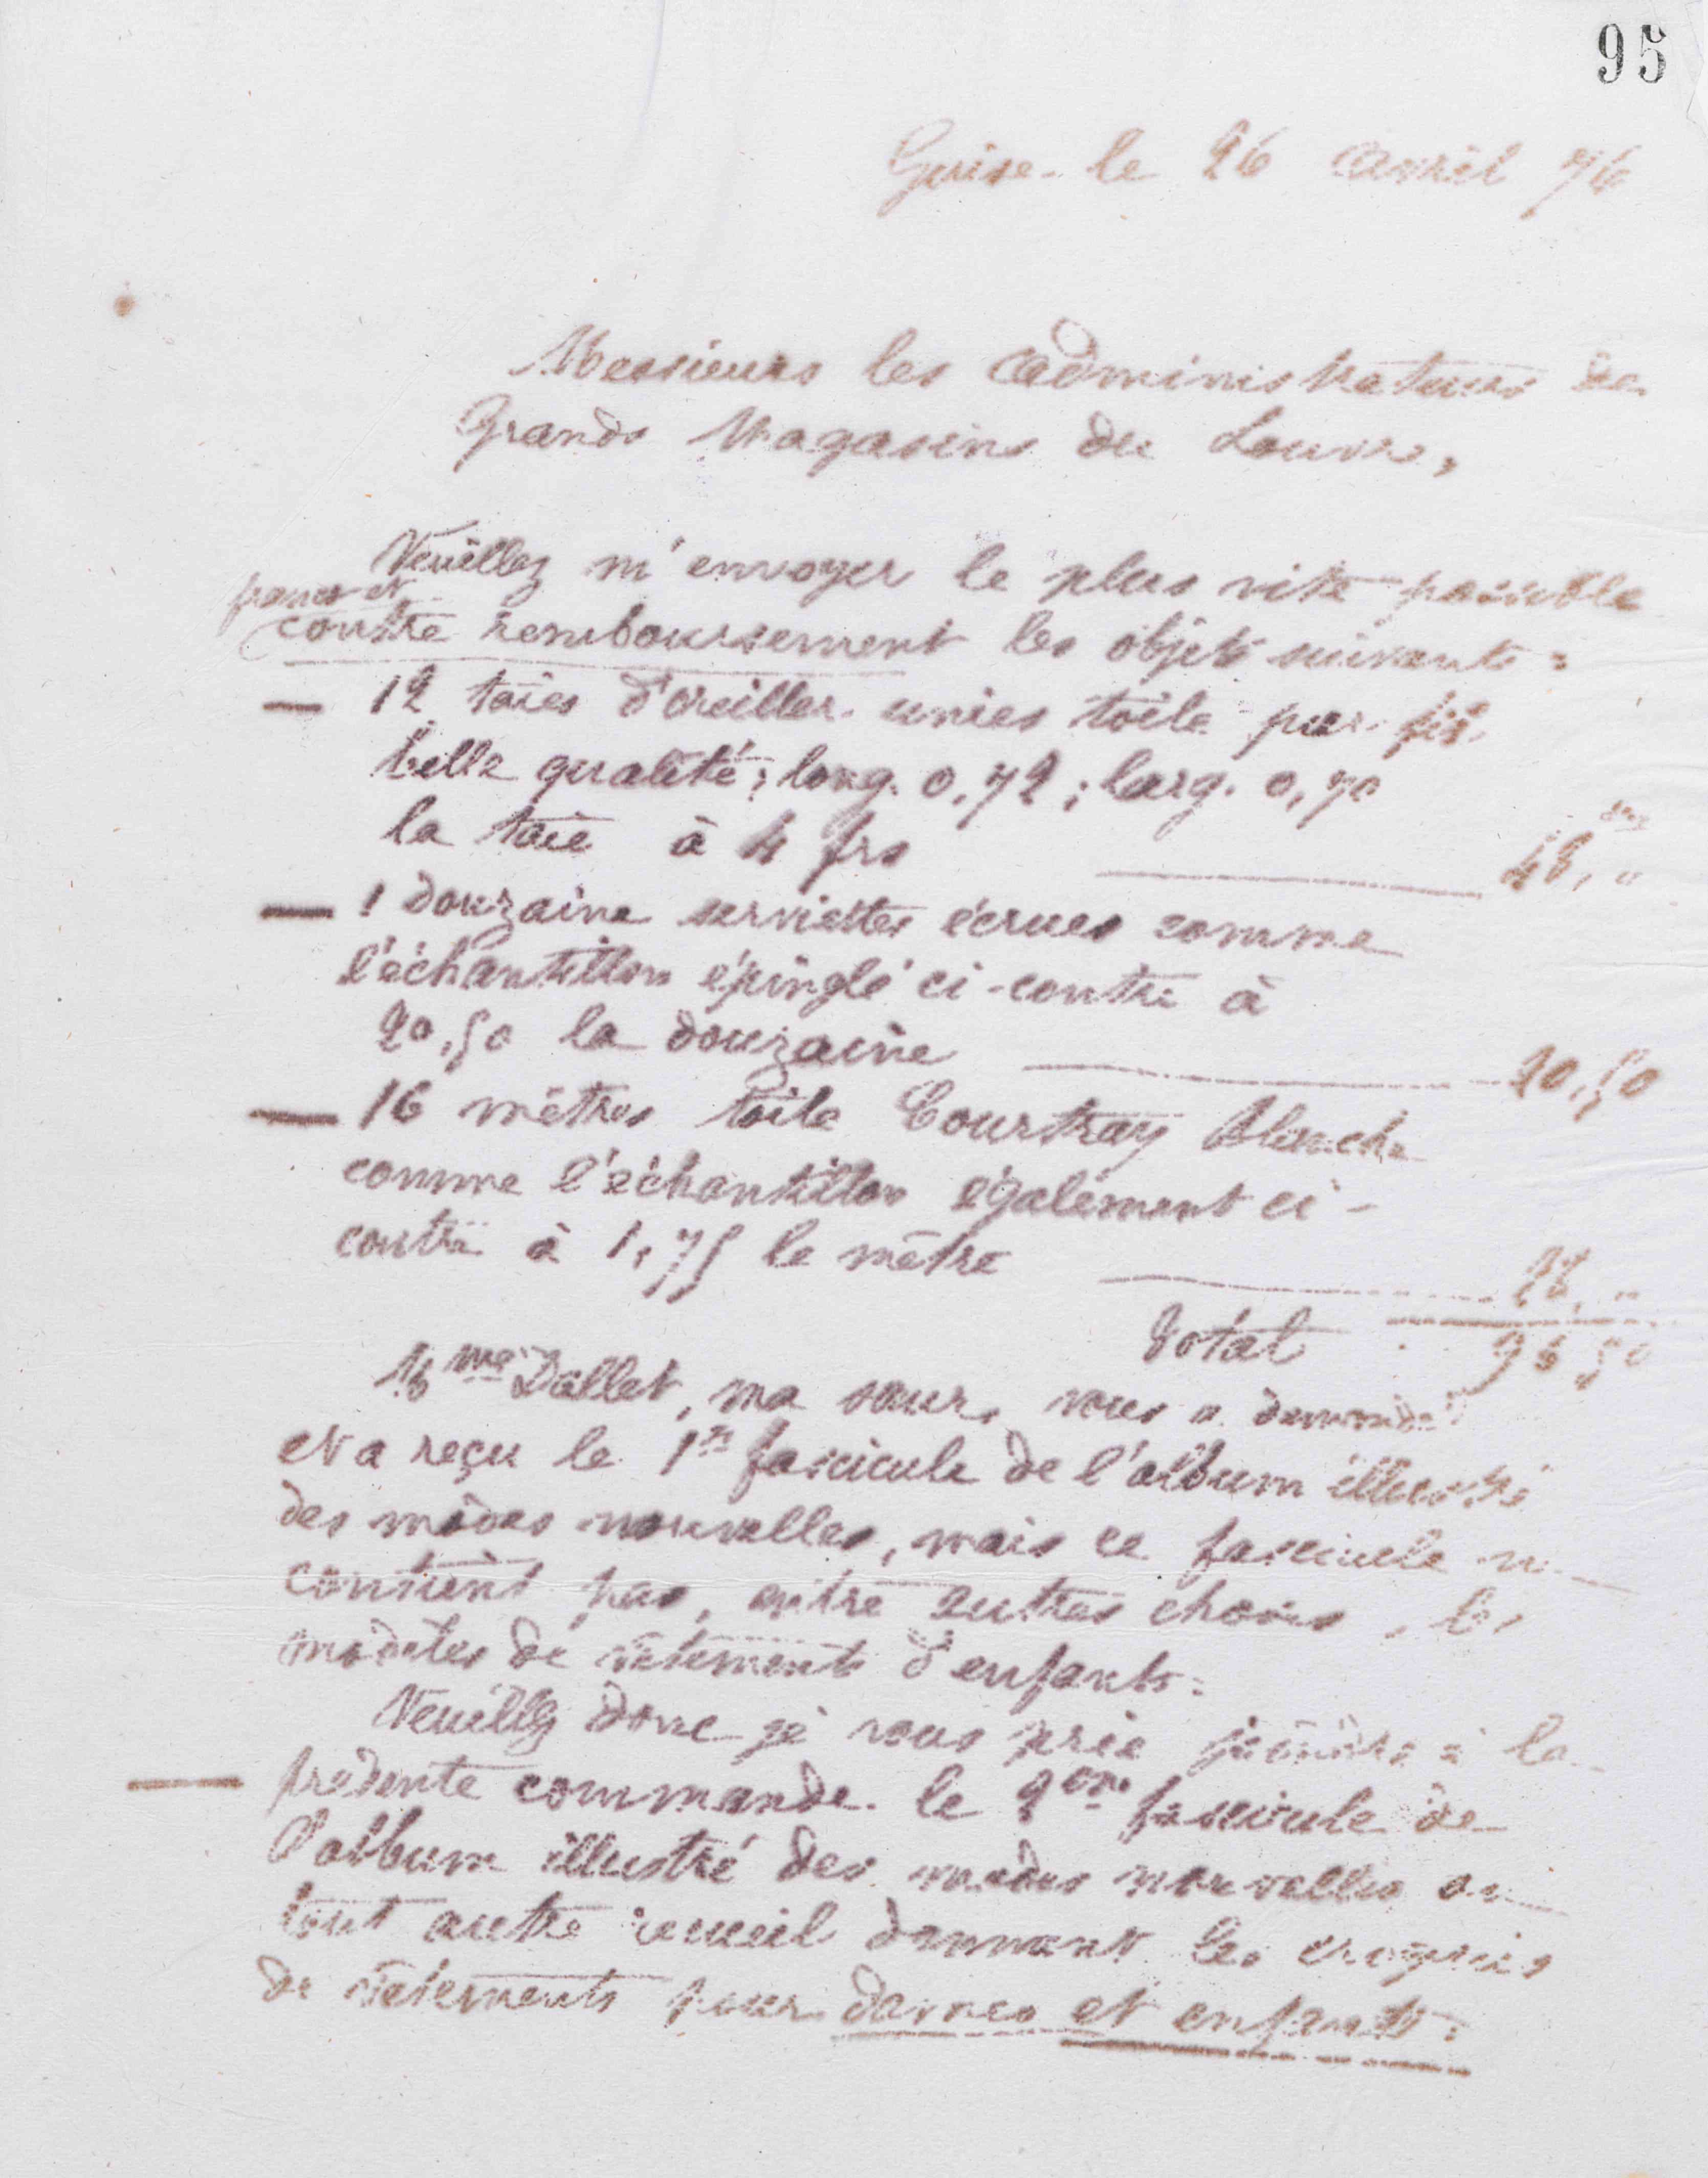 95
Guise. le 26 avril 76
Messieurs les administrateurs des
Grands Magasins du Louvre,
Veuillez m'envoyer le plus vite possible
franco et
contre remboursement les objets suivants :
— 12 taies d'oreiller unies toile pur fil
belle qualité ; long. 0,72 ; larg. 0,70
la taie à 4 frs 48, "
— 1 douzaine serviettes écrues comme
l'échantillon épinglé ci-contre à
20,50 la douzaine 20,50
— 16 mètres toile Courtray blanche
comme l'échantillon également ci-
contre à 1,75 le mètre 28, "
Total 96 50
Mme Dallet, ma sœur, vous a demandé
et a reçu le 1er fascicule de l'album illustré
des modes nouvelles, mais ce fascicule ne
contient pas, entre autres choses, les
modèles de vêtements d'enfants.
Veuillez donc je vous prie joindre à la
— présente commande le 2em fascicule de
l'album illustré des modes nouvelles ou
tout autre recueil donnant les croquis
de vêtements pour dames et enfants.